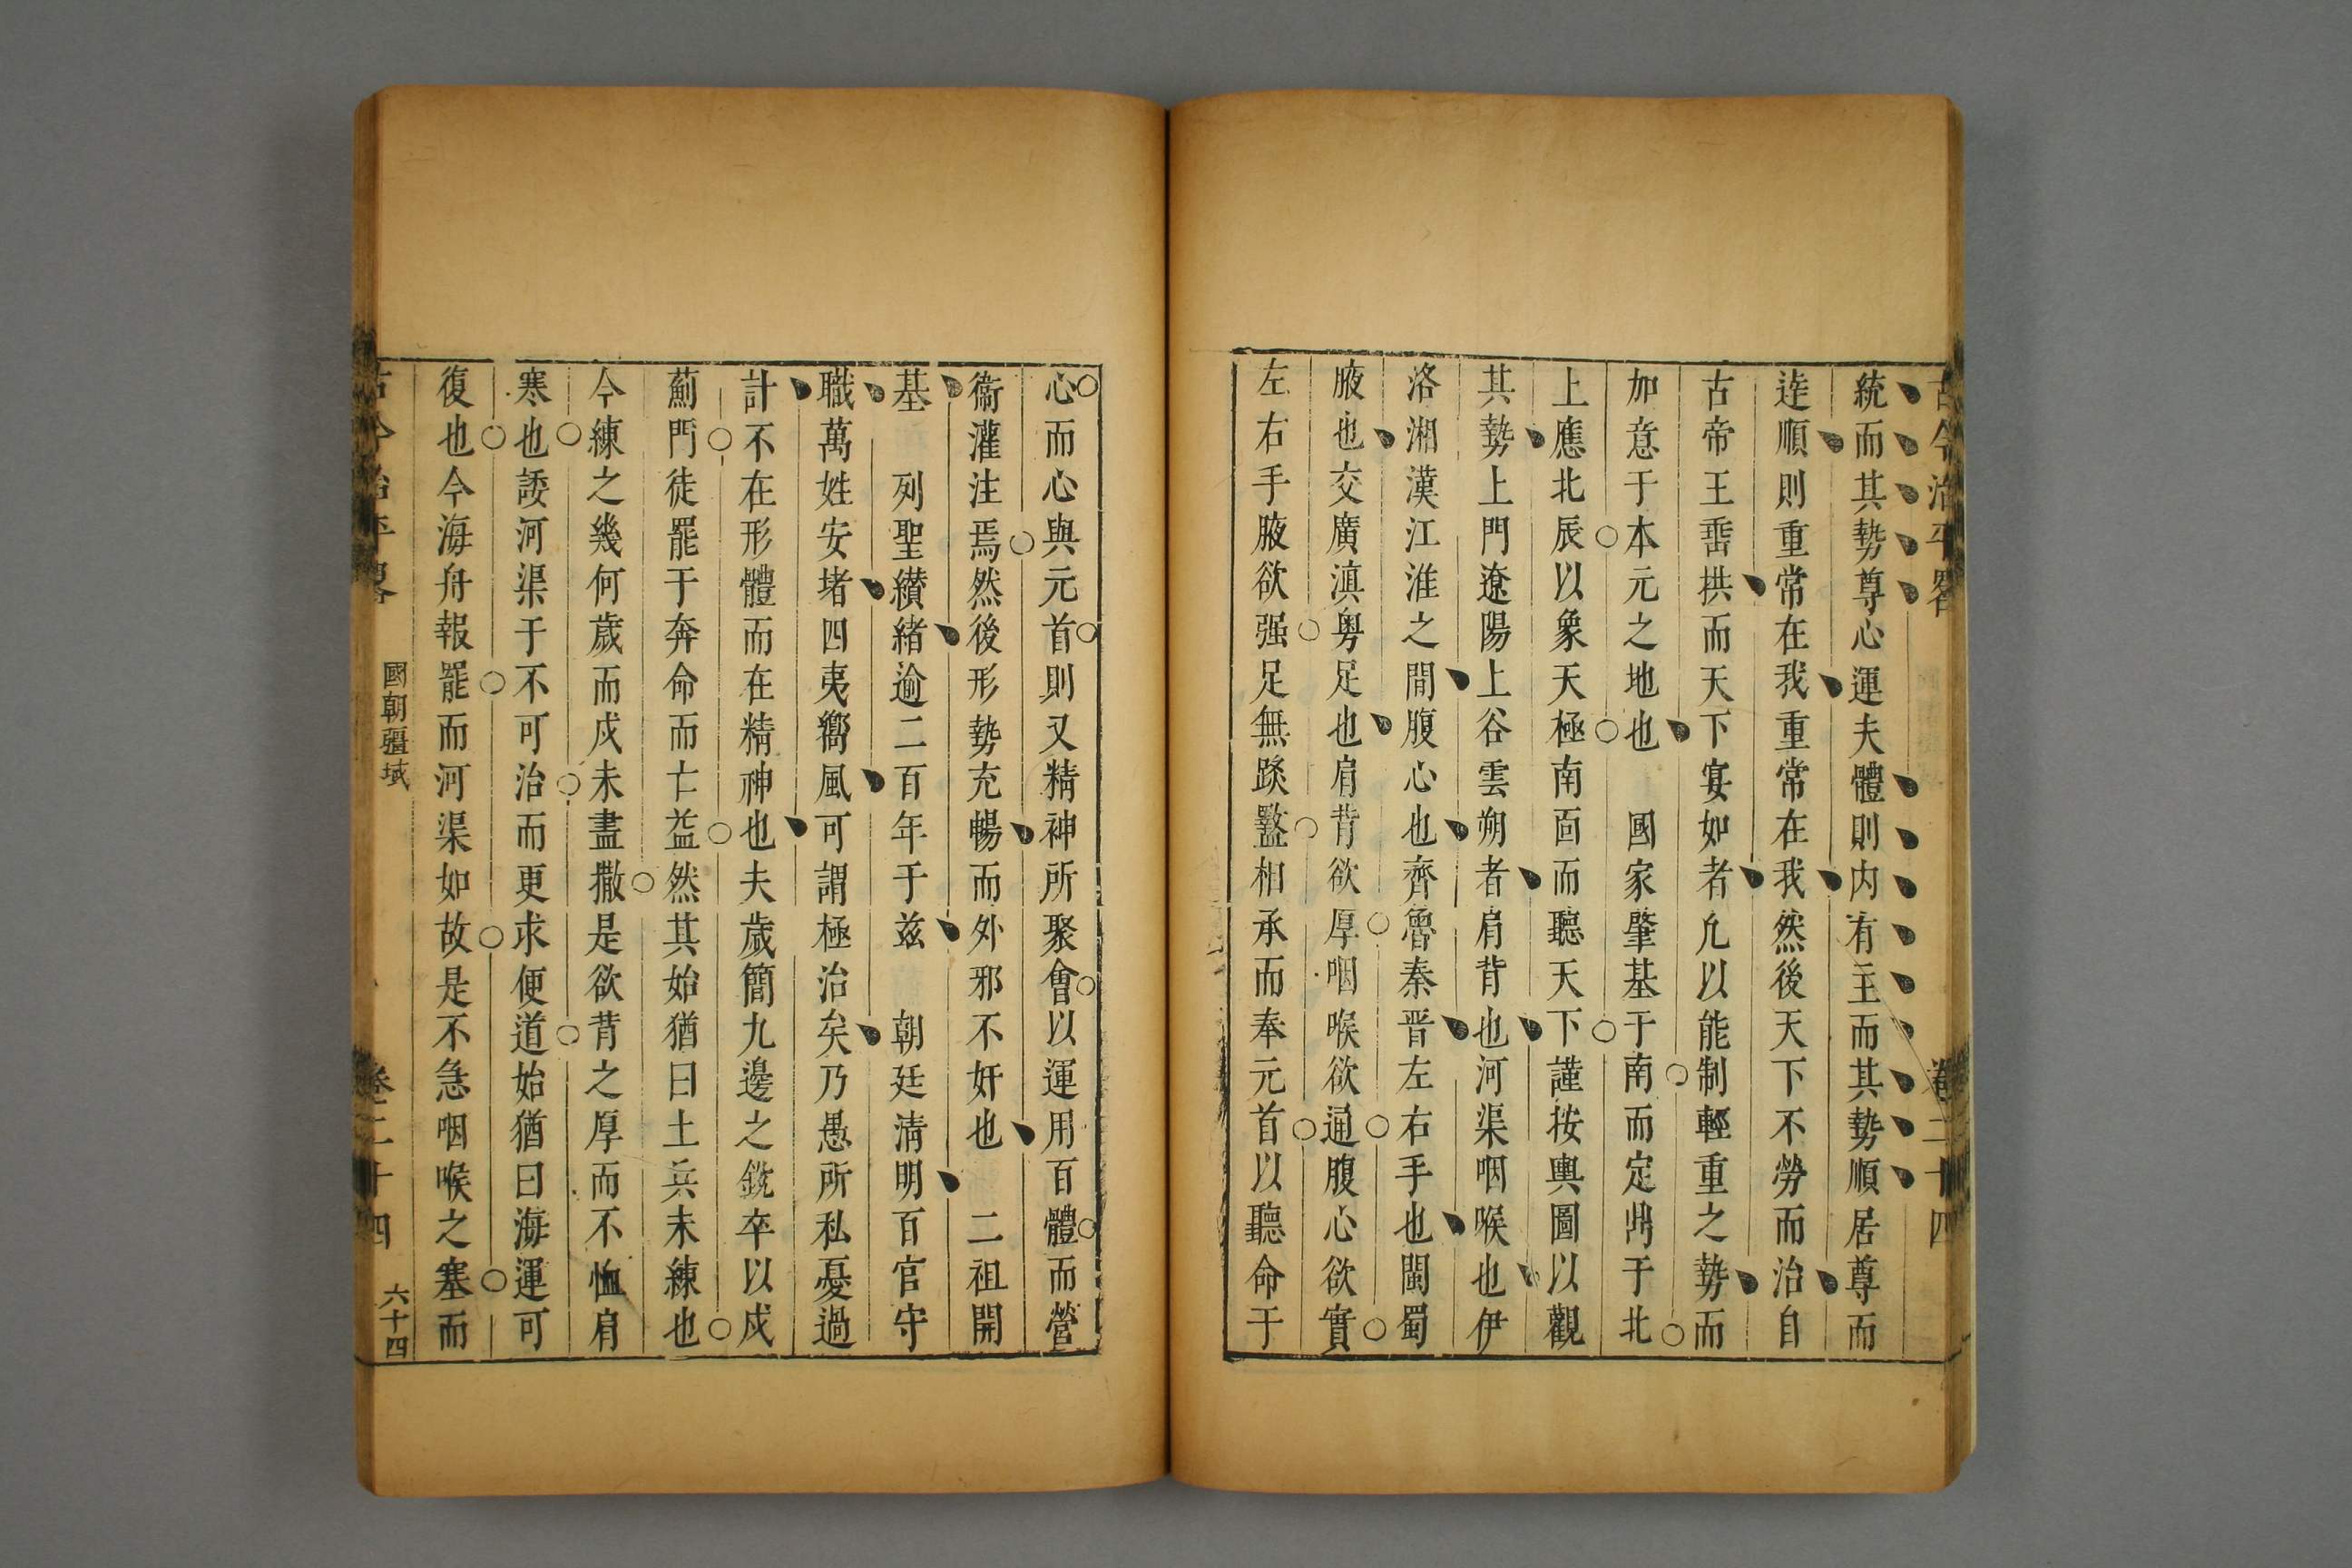 古今治平畧 卷二十四
統而其勢尊心運夫體則内有主而其勢順居尊而
逹順則重常在我重常在我然後天下不勞而治自
古帝王垂拱而天下宴如者凢以能制輕重之勢而
加意于本元之地也 國家肇基于南而定鼎于北
上應北辰以象天極南面而聽天下謹按輿圖以觀
其勢上門遼陽上谷雲朔者肩背也河渠咽喉也伊
洛湘漢江淮之間腹心也齊魯秦晋左右手也閩蜀
腋也交廣滇粤足也肩背欲厚咽喉欲通腹心欲實
左右手腋欲强足無蹊盭相承而奉元首以聽命于
心而心與元首則又精神所聚會以運用百體而營
衞灌注焉然後形勢充暢而外邪不奸也 二祖開
基 列聖纘緒逾二百年于兹 朝廷淸明百官守
職萬姓安堵四夷嚮風可謂極治矣乃愚所私憂過
計不在形體而在精神也夫歲簡九邊之銳卒以戍
薊門徒罷于奔命而亡益然其始猶曰土兵未練也
今練之幾何歲而戍未盡撤是欲背之厚而不恤肩
寒也諉河渠于不可治而更求便道始猶曰海運可
復也今海舟報罷而河渠如故是不急咽喉之塞而
古今治平畧 國朝疆域 卷二十四 六十四